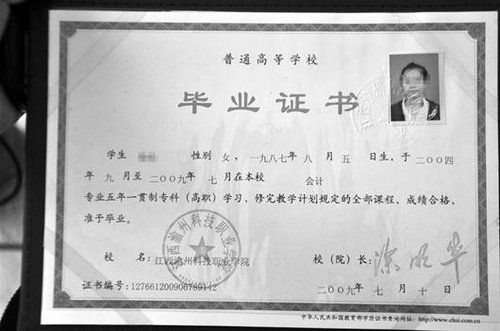 普通高等学校
毕业证书
学生 性别 女，一九八七年八月五日生，于二〇〇四
年九月至二〇〇九年七月在本校 会计
专业五年一贯制专科（高职）学习，修完教学计划规定的全部课程，成绩合格，
准予毕业。
校 名：江西渝州科技职业学院 校（院）长：涂明华
证书编号：127661200906789142
二〇〇九年七月十日
中华人民共和国教育部学历证书查询网址：http://www.chsi.com.cn
江西渝州科技职业学院